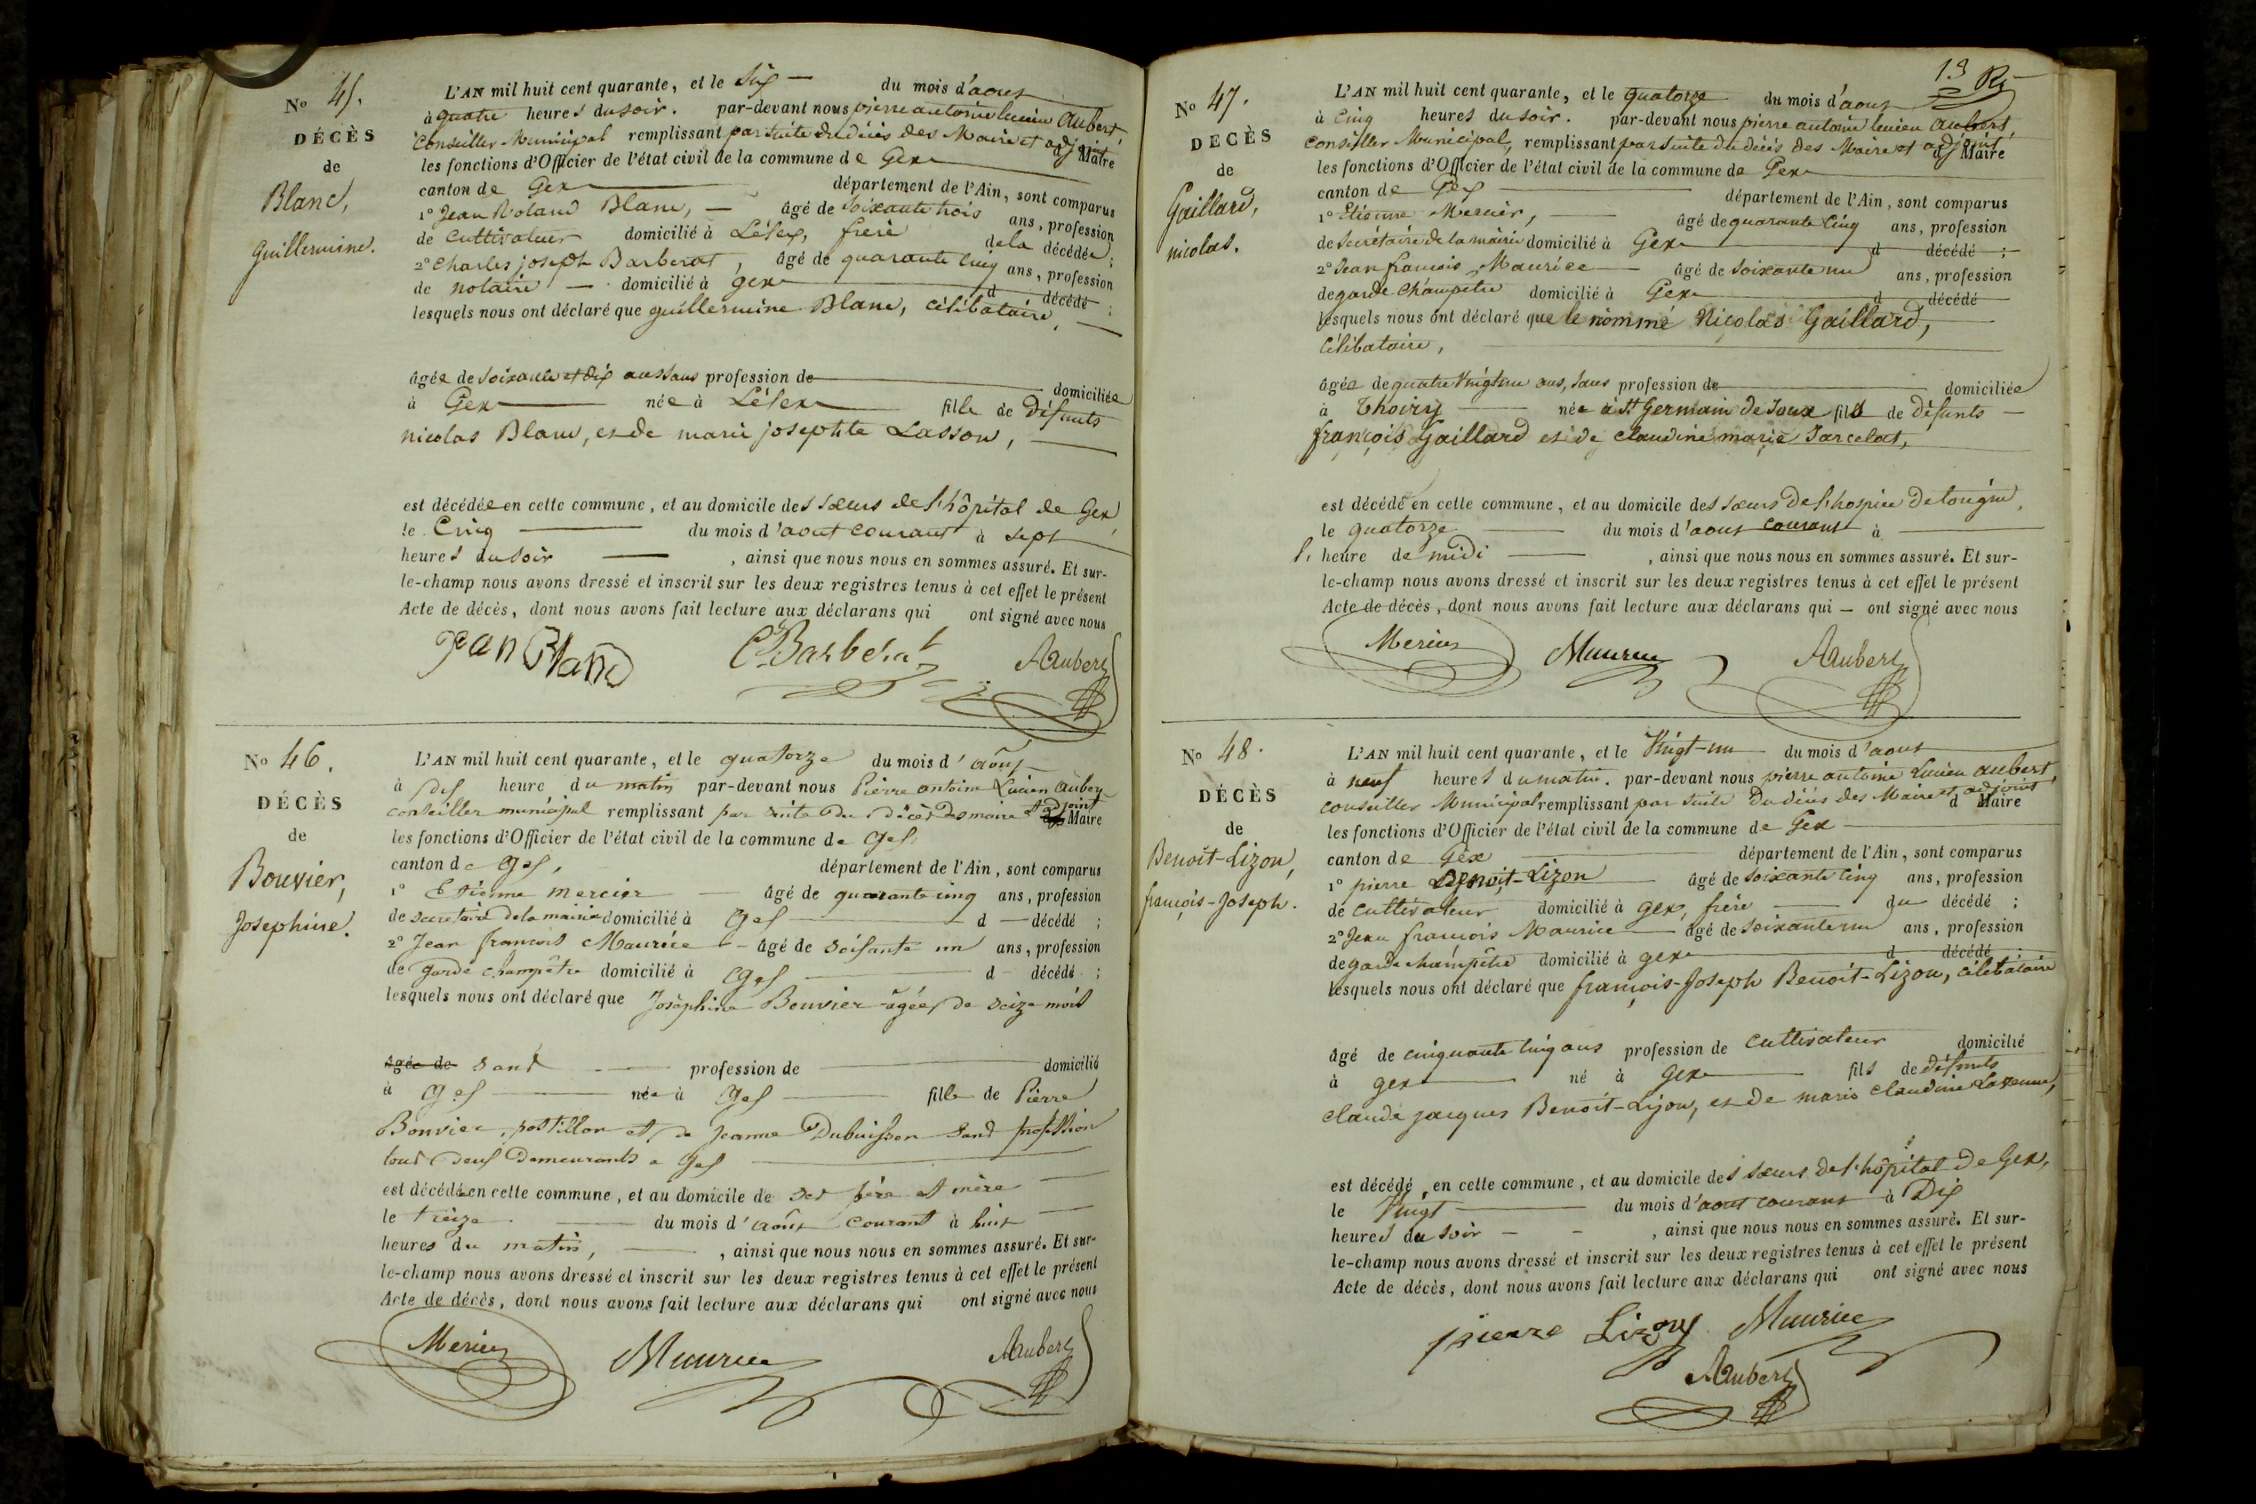 N.º 45.
DÉCÈS
de
Blanc,
Guillermine.
L'AN mil huit cent quarante, et le Six — du mois d'aout
à quatre heures du soir. par-devant nous pierre antoine lucien Aubert,
Conseiller Municipal remplissant par suite du décès des Maire et adjoint d Maire
les fonctions d'Officier de l'état civil de la commune de Gex
canton de Gex département de l'Ain, sont comparus
1º Jean Roland Blanc, — âgé de soixante trois ans, profession
de cultivateur domicilié à Lélex, frère de la décédée ;
2º Charles joseph Barberat, âgé de quarante cinq ans, profession
de notaire — domicilié à gex d décédé ;
lesquels nous ont déclaré que guillermine Blanc, célibataire,
âgée de soixante et dix ans sans profession de domiciliée
à Gex née à Lélex fille de défunts
nicolas Blanc, et de marie josephte Lasson,
est décédée en cette commune, et au domicile des sœurs de l'hôpital de Gex
le Cinq du mois d'aout courant à sept
heures du soir , ainsi que nous nous en sommes assuré. Et sur-
le-champ nous avons dressé et inscrit sur les deux registres tenus à cet effet le présent
Acte de décès, dont nous avons fait lecture aux déclarans qui ont signé avec nous
Jean Blanc C. Barberat Aubert
N.º 46.
DÉCÈS
de
Bouvier,
Josephine.
L'AN mil huit cent quarante, et le quatorze du mois d'août
à dix heure du matin par-devant nous Pierre antoine Lucien Aubert
conseiller municipal remplissant par suite du décès des maire et adjoint Maire
les fonctions d'Officier de l'état civil de la commune de Gex
canton de Gex, département de l'Ain, sont comparus
1º Etienne Mercier — âgé de quarante cinq ans, profession
de secretaire de la mairie domicilié à Gex d — décédé ;
2º Jean francois Maurice — âgé de soixante un ans, profession
de garde champêtre domicilié à Gex d décédé ;
lesquels nous ont déclaré que Joséphine Bouvier âgée de seize mois
âgée de sans — profession de domicilié
à Gex née à Gex fille de Pierre
Bouvier, postillon et de Jeanne Dubuisson sans profession
tous deux demeurants a Gex
est décédée en cette commune, et au domicile de ses père et mère
le treize du mois d'août courant à huit
heures du matin, , ainsi que nous nous en sommes assuré. Et sur-
le-champ nous avons dressé et inscrit sur les deux registres tenus à cet effet le présent
Acte de décès, dont nous avons fait lecture aux déclarans qui ont signé avec nous
Mercier Maurice Aubert
13
N.º 47.
DÉCÈS
de
Gaillard,
nicolas.
L'AN mil huit cent quarante, et le quatorze du mois d'aout
à Cinq heures du soir. par-devant nous pierre antoine lucien Aubert,
Conseiller Municipal, remplissant par suite du décès des Maire et adjoint d Maire
les fonctions d'Officier de l'état civil de la commune de Gex
canton de Gex département de l'Ain, sont comparus
1º Etienne Mercier, âgé de quarante cinq ans, profession
de secrétaire de la mairie domicilié à Gex d décédé ;
2º Jean francois Maurice âgé de soixante un ans, profession
de garde Champêtre domicilié à Gex d décédé
lesquels nous ont déclaré que le nommé Nicolas Gaillard,
Célibataire,
âgée de quatre vingt un ans, sans profession de domiciliée
à Thoiry née à St Germain de Joux fils de défunts —
françois Gaillard et de claudine marie Jarcelat,
est décédé en cette commune, et au domicile des sœurs de l'hospice de tougin,
le quatorze du mois d'aout courant à
l' heure de midi , ainsi que nous nous en sommes assuré. Et sur-
le-champ nous avons dressé et inscrit sur les deux registres tenus à cet effet le présent
Acte de décès, dont nous avons fait lecture aux déclarans qui — ont signé avec nous
Mercier Maurice Aubert
N.º 48.
DÉCÈS
de
Benoit-Lizon,
françois-Joseph.
L'AN mil huit cent quarante, et le Vingt-un du mois d'aout
à neuf heures du matin. par-devant nous pierre antoine Lucien Aubert,
conseiller Municipal remplissant par suite du décès des Maire et adjoint d Maire
les fonctions d'Officier de l'état civil de la commune de Gex
canton de Gex département de l'Ain, sont comparus
1º pierre Benoit-Lizon âgé de soixante cinq ans, profession
de cultivateur domicilié à gex, frère du décédé ;
2º Jean françois Maurice âgé de soixante un ans, profession
de garde champêtre domicilié à gex d décédé ;
lesquels nous ont déclaré que françois-Joseph Benoit-Lizon, célibataire
âgé de cinquante cinq ans profession de cultivateur domicilié
à gex né à Gex fils de défunts
claude jacques Benoit-Lizon, et de marie claudine
est décédé en cette commune, et au domicile des sœurs de l'hôpital de Gex,
le Vingt du mois d'aout courant à Dix
heures du soir — — , ainsi que nous nous en sommes assuré. Et sur-
le-champ nous avons dressé et inscrit sur les deux registres tenus à cet effet le présent
Acte de décès, dont nous avons fait lecture aux déclarans qui ont signé avec nous
pierre Lizon Maurice
Aubert